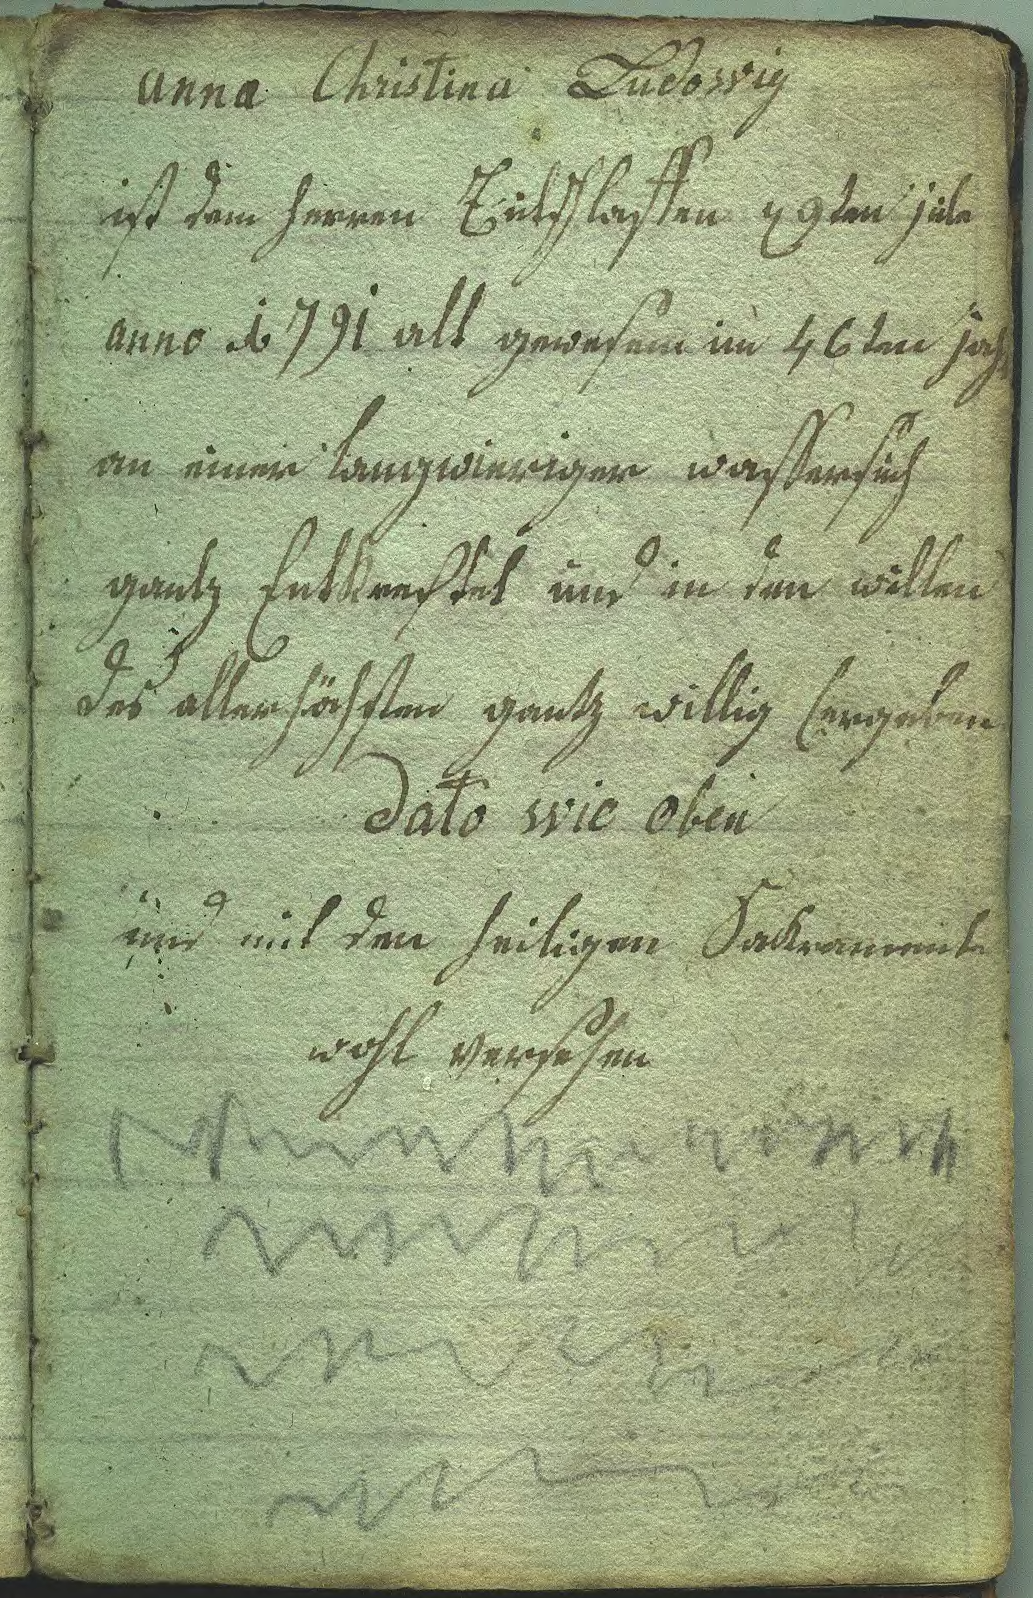 anna Christina Ludowig
ist dem herren Entschlaffen 29ten jule
anno 1791 alt gewesen im 46ten jahr
an einer langwieriger wassersuch
gantz Entkrefftet und in den willen
des allerhöchsten gantz willig Ergeben
Dato wie oben
und mit den heiligen Sackrament
wohl versehen